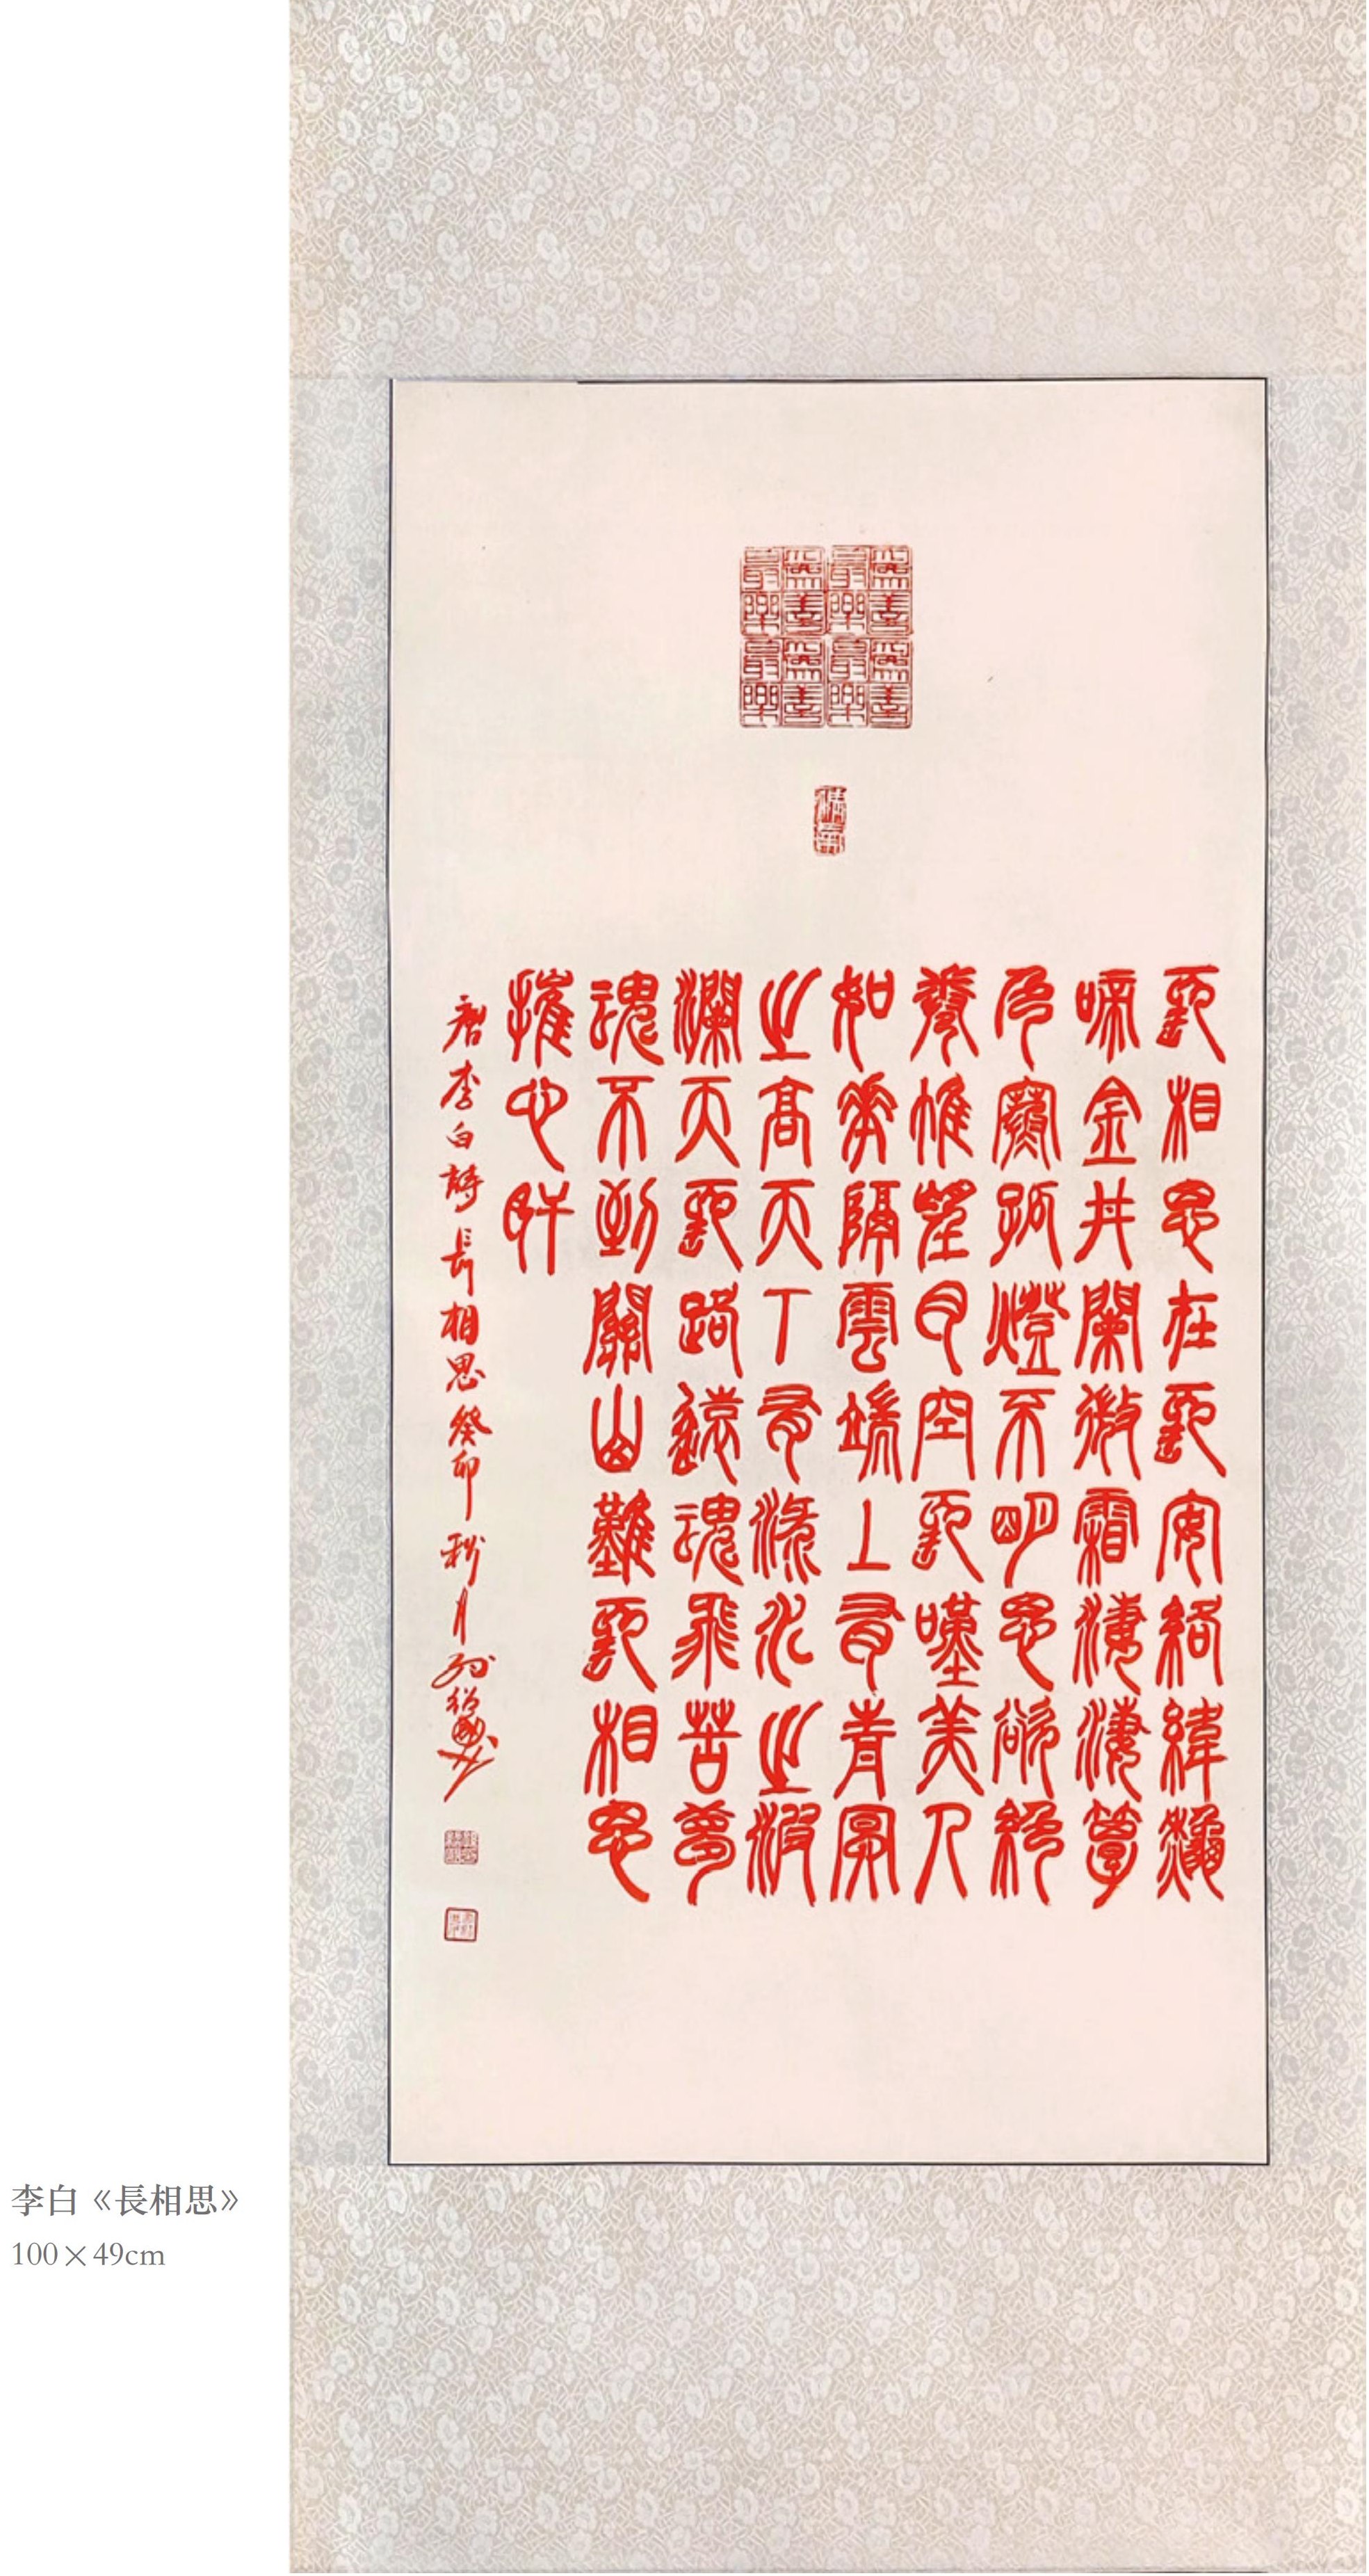 為善最樂
為善最樂
為善最樂
為善最樂
長相思在長安絡緯秋
啼金井闌微霜淒淒簟
色寒孤燈不明思欲絕
卷帷望月空長嘆美人
如花隔雲端上有青冥
之高天下有淥水之波
瀾天長路遠魂飛苦夢
魂不到關山難長相思
摧心肝
唐李白詩長相思癸卯秋月
李白《長相思》
100×49cm